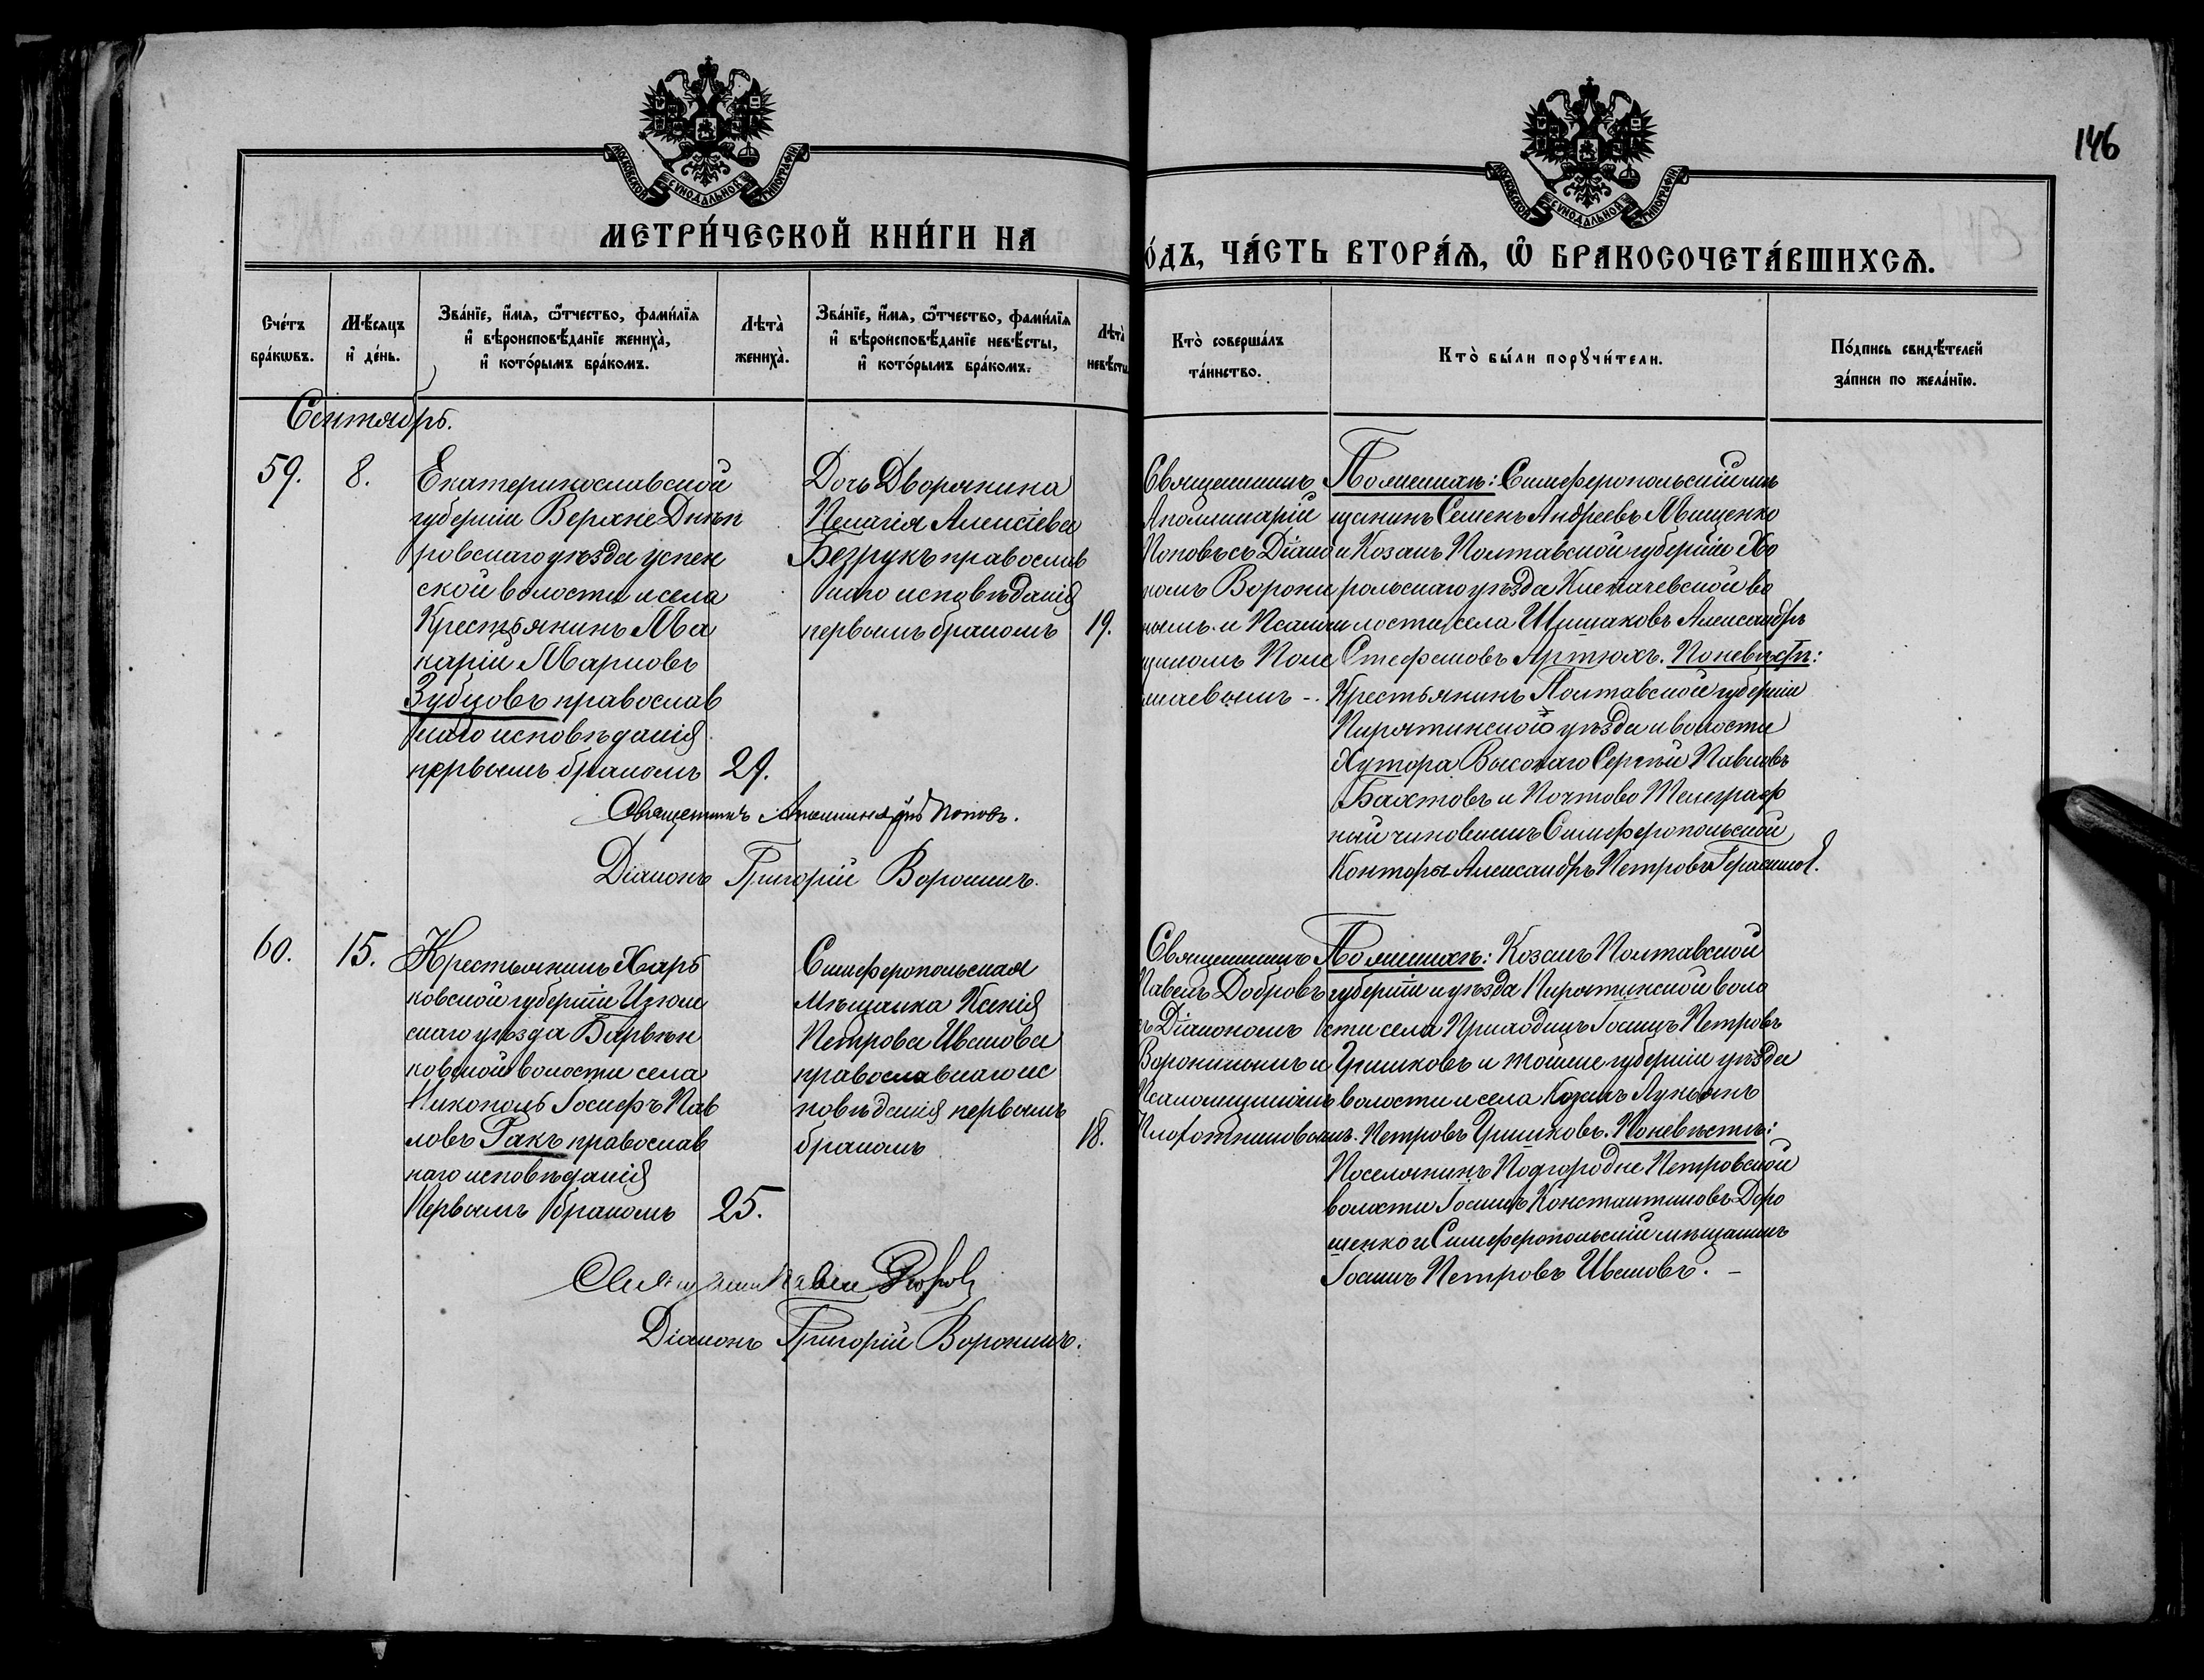 146
МОСКОВСКОЙ СѴНОДАЛЬНОЙ ТИПОГРАФІИ
МОСКОВСКОЙ СѴНОДАЛЬНОЙ ТИПОГРАФІИ
МЕТРИ́ЧЕСКОЙ КНИ́ГИ НА
О́ДЪ, ЧА́СТЬ ВТОРА́Ѧ, Ѽ БРАКОСОЧЕТА́ВШИХСѦ.
Сче́тъ
бра́кѡвъ.
Мѣ́сяцъ
и҆ де́нь.
Зва́нїе, и҆́мѧ, ѻ҆́тчество, фамн́лїѧ
и҆ вѣроисповѣ́данїе жениха̀,
и҆ кото́рымъ бра́комъ.
Лѣта̀
жениха̀.
Зва́нїе, и҆́мѧ, ѻ҆́тчество, фами́лїѧ
и҆ вѣроисповѣ́данїе невѣ́сты,
и҆ кото́рымъ бра́комъ.
Лѣта̀
невѣ́сты
Кто̀ соверша́лъ
та́инство.
Кто̀ бы́ли порꙋчи́тели.
По́дпись свидѣ́телей
за́писи по жела́нїю.
Сентябрь.
59.
8.
Екатеринославской
губерніи Верхне Днѣп
ровскаго уѣзда успен
ской волости и села
Крестьянинъ Ма
карій Марковъ
Зубцовъ православ
наго исповѣданія
первымъ бракомъ
29.
Дочь Дворянина
Пелагія Алексіева
Безрукъ православ
наго исповѣданія
первымъ бракомъ
19.
Священникъ
Аполлинарій
Поповъ съ Діако
номъ Ворони
нымъ и Псалом
щикомъ Поле
По женихѣ: Симферопольскій мѣ
щанинъ Семенъ Андреевъ Мищенко
и Козакъ Полтавской губерніи Хо
рольскаго уѣзда во
лости, села Шишаковъ Александръ
Стефановъ Артюхъ. По невѣстѣ:
Крестьянинъ Полтавской губерніи
Пирятинского уѣзда и волости
Хутора Высокаго Сергій Павловъ
и Почтово Телеграф
ный чиновникъ Симферопольской
Конторы Александръ Петровъ Герасимов.
Священникъ Аполлинарій Поповъ.
Діаконъ Григорій Воронинъ.
60.
15.
Крестьянинъ Харь
ковской губерніи Изюм
скаго уѣзда Барвѣн
ковской волости села
Никополь Іосифъ Пав
ловъ Ракъ православ
наго исповѣданія
Первымъ бракомъ
25.
Симферопольская
мѣщанка Ксенія
Петрова Иванова
православнаго ис
повѣданія первымъ
бракомъ
18.
Священникъ
Павелъ Добровъ
съ Діакономъ
Воронинымъ и
Псаломщикомъ
Плотниковымъ.
По женихѣ: Козакъ Полтавской
губерніи и уѣзда Пирятинской воло
сти села Приходицъ Іоаннъ Петровъ
Гришковъ и тойже губерніи уѣзда
волости и села Козакъ Лукьянъ
Петровъ Гришковъ. По невѣстѣ:
Поселянинъ Подгородне Петровской
волости Іоаннъ Константиновъ Доро
шенко и Симферопольскій мѣщанинъ
Іоаннъ Петровъ Ивановъ. –
Священникъ Павелъ Добровъ
Діаконъ Григорій Воронинъ.